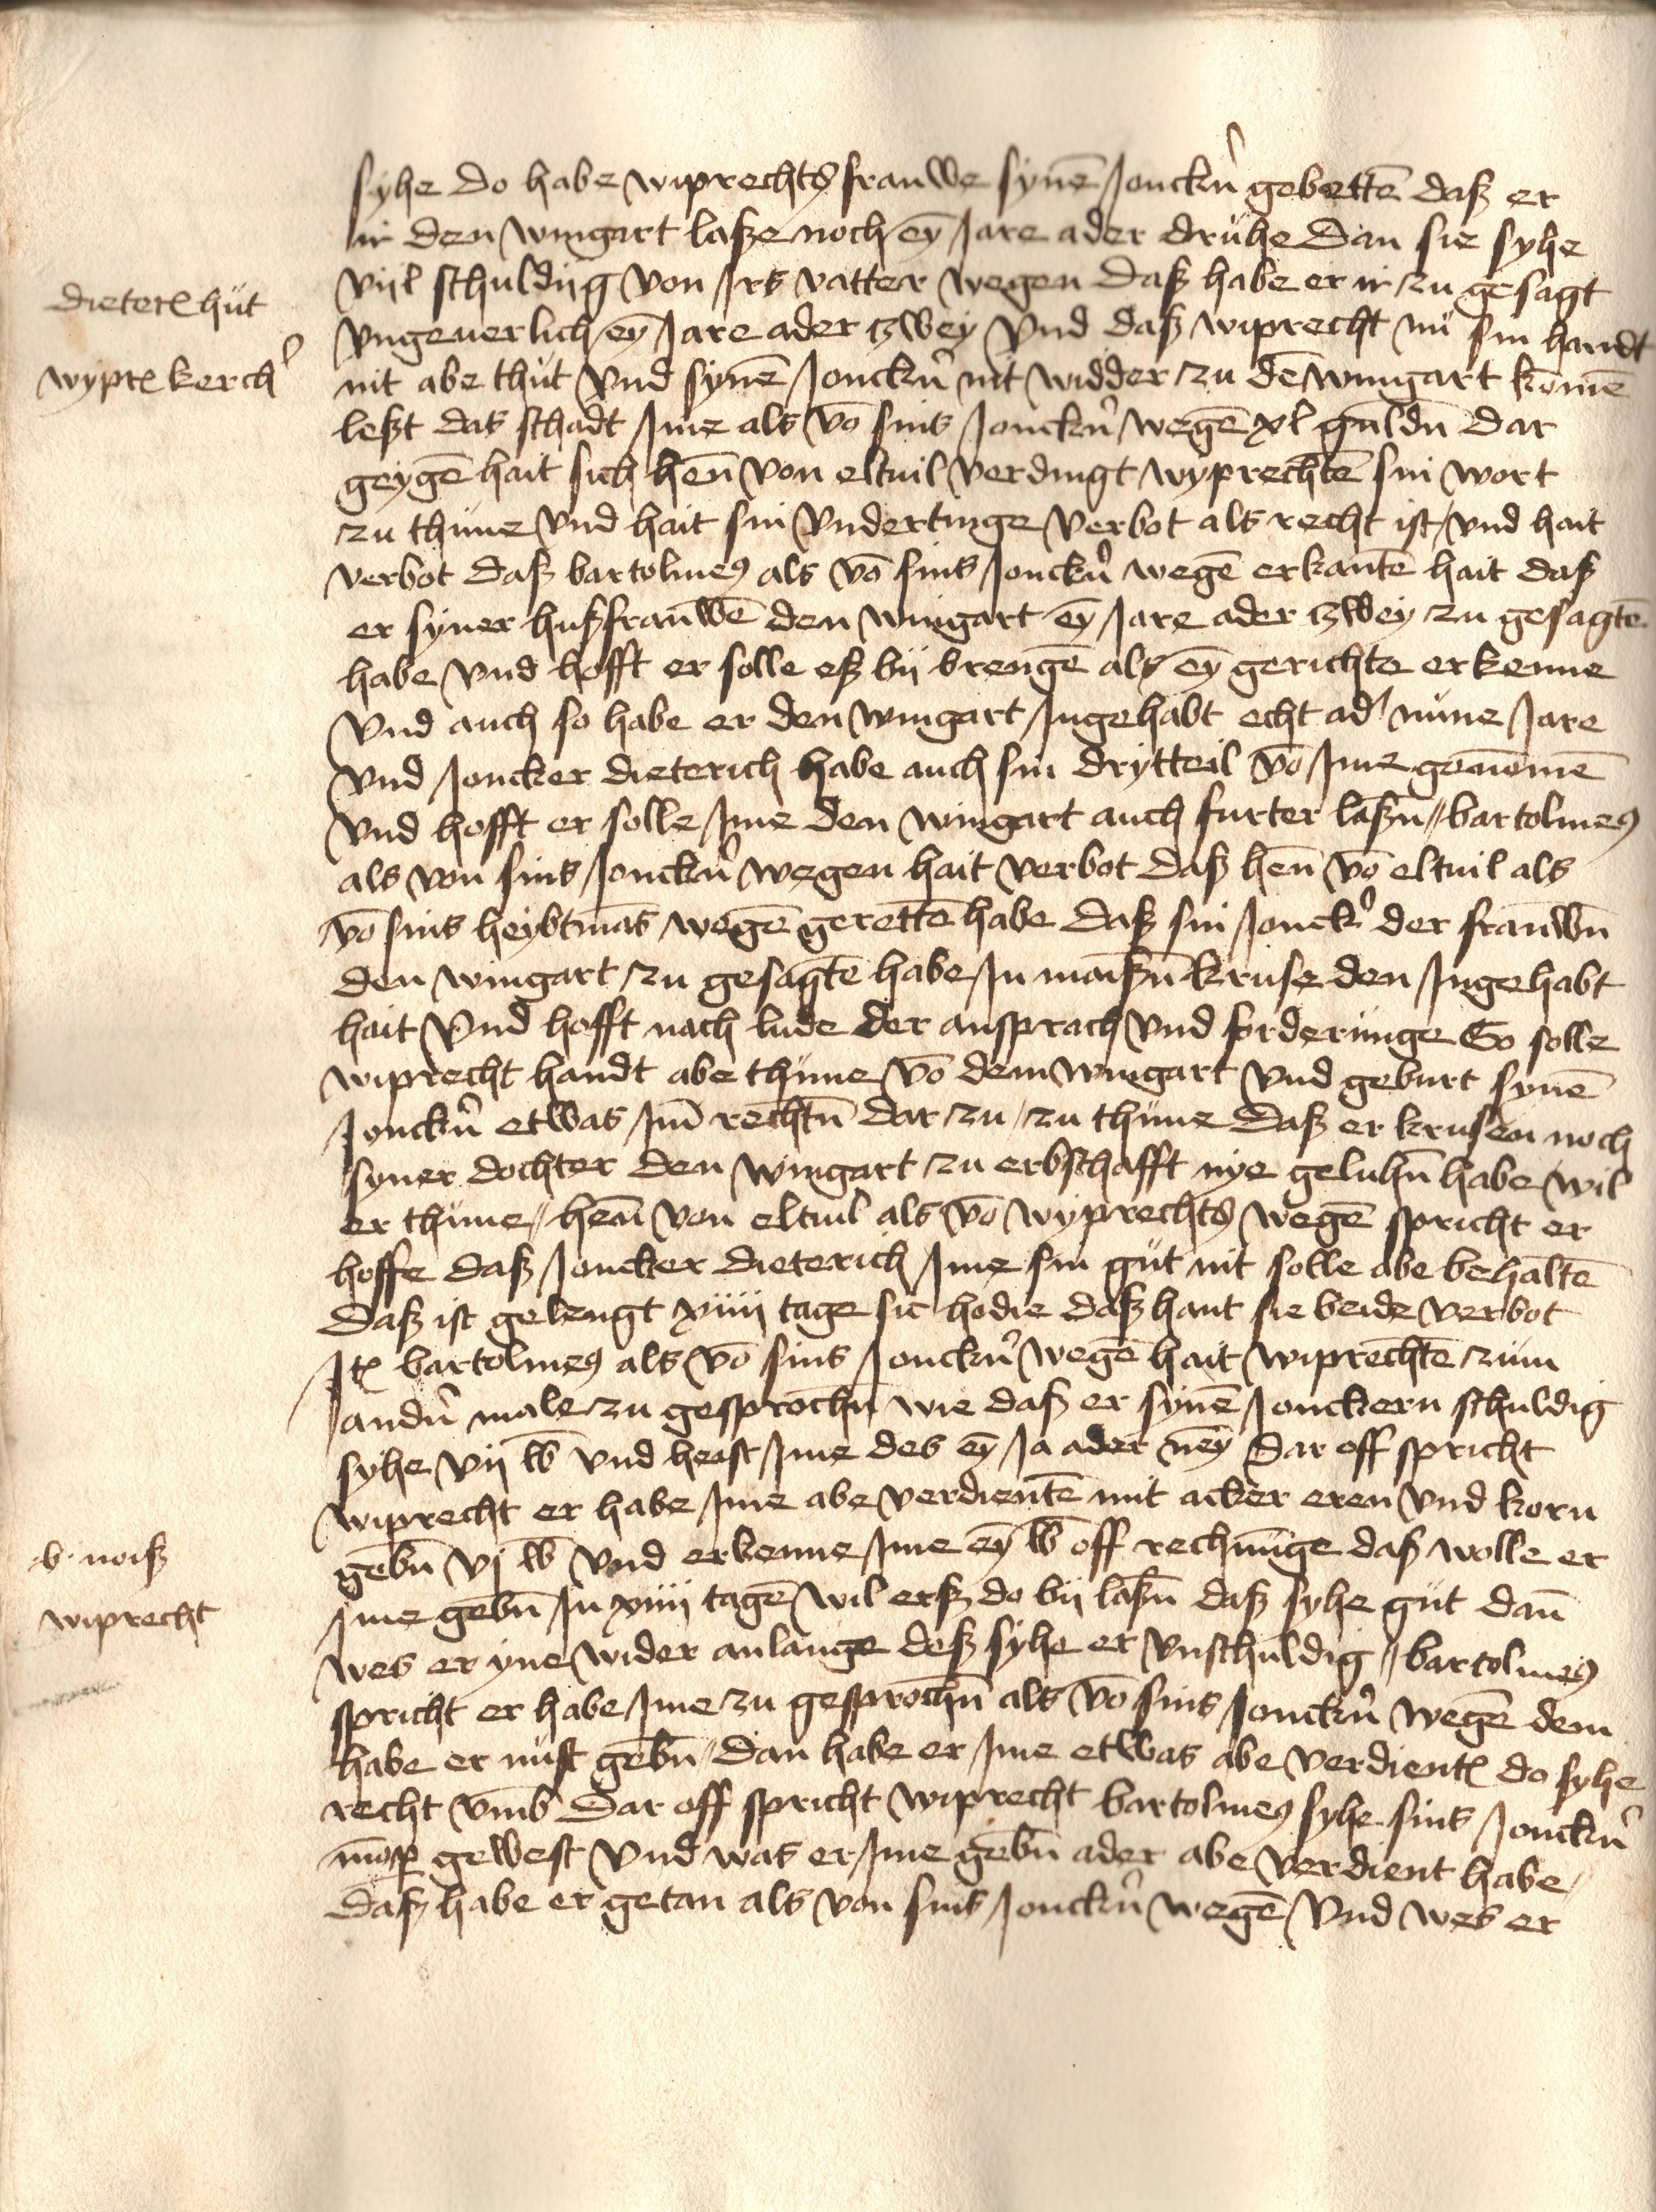 syhe do habe wiprechts frauwe synē Jonckn̄ gebettē daß er
ir den wingart laße noch eȳ Jare ader drühe Dan sie syhe
viil schuldiig von Jrs vatter wegen Daß habe er ir zu gesagt
dieterꝭ hüt
vngeuerlich eȳ Jare ader zwey vnd daß wiprecht nü sin handt
wyprꝭ kerchꝰ
nit abe thüt vnd synē Jonckn̄ nit widder zu dē wingart komē
leßt das schadt Jme als vō sins Jonckn̄ wegē xl guldn̄ Dar
geygē hait sich hen̄ von eltuil verdingt wyprechtē sin wort
zu thüne vnd hait sin vndertinge verbot als recht ist vnd hait
verbot daß bartolmeꝰ als vō sins Jonckn̄ wegē erkantē hait daß
er syner hußfrauwē den wingart eȳ Jare ader zwey zu gesagtē
habe vnd hofft er solle eß bij brengē als eȳ gerichte erkenne
vnd auch so habe er den wingart Jngehabt echt ad' nüne Jare
vnd Joncker dieterich habe auch sin drytteil vō Jme genōmē
vnd hofft er solle Jme den wingart auch furter laßn̄ // bartolmeꝰ
als von sins Jonckn̄ wegen hait verbot daß hen̄ vō eltuil als
vō sins heybtmās wegē gerettē habe daß sin Jonckꝰ der frauwn̄
den wingart zu gesagtē habe Jn maißn̄ kruse den Jngehabt
hait vnd hofft nach lude der ansprach vnd forderünge So solle
wiprecht handt abe thüne vō dem wingart vnd geburt synē
Jonckn̄ etwas Jm̄ rechtn̄ dar zu / zu thüne daß er krusen noch
syner dochter den wingart zu erbschafft nye geluhn̄ habe wil
er thüne // hen̄ von eltuil als vō wyprechts wegē spricht er
hoffe daß Joncker dieterich Jme sin güt nit solle abe behaltē
Daß ist gelengt xiiij tage sic hodie daß hant sie beide verbot
Jtꝭ bartolmeꝰ als vō sins Jonckn̄ wegē hait wiprechtē züm
andn̄ male zu gesprochn̄ wie daß er synē Jonckern schuldig
syhe vij lb vnd heist Jme des eȳ Ja ader neȳ Dar off spricht
wiprecht er habe Jme abe verdientē mit acker eren vnd korn
b. noiß
gebn̄ vj lb vnd erkenne Jme eȳ lb off rechnūnge daß wolle er
wiprecht
Jme gebn̄ Jn xiiij tagē wil erß do bij laßn̄ daß syhe güt dan̄
wes er yne wider anlange deß syhe er vnschuldig // bartolmeꝰ
spricht er habe Jme zu gesprochn̄ als vō sins Jonckn̄ wegē dem
habe er nüst gebn̄ / Dan habe er Jme etwas abe verdientꝭ do syhe
recht vmb Dar off spricht wiprecht bartolmeꝰ syhe sins Jonckn̄
mōꝑ gewest vnd was er Jme gebn̄ ader abe verdient habe /
daß habe er getan als von sins Jonckn̄ wegē vnd wes er